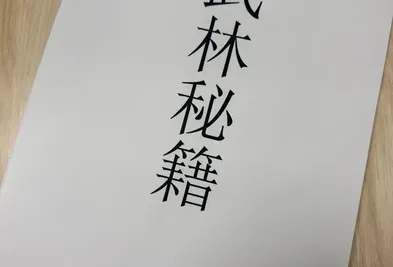 武林秘籍